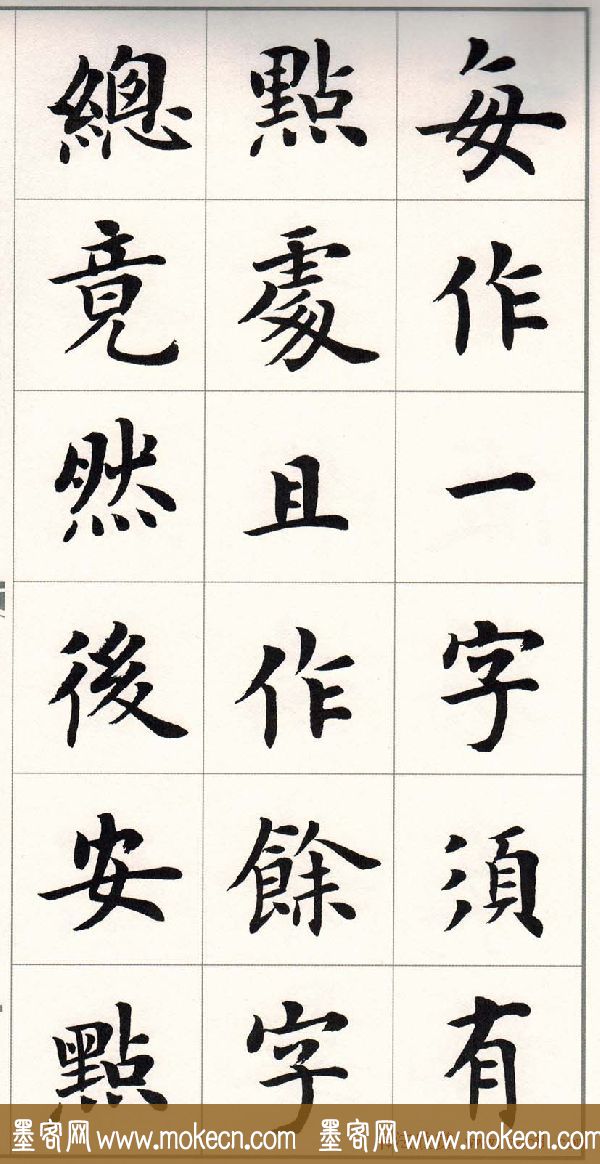 每作一字須有
點處且作餘字
總竟然後安點
墨客网 www.mokecn.com 墨客网 www.mokecn.com